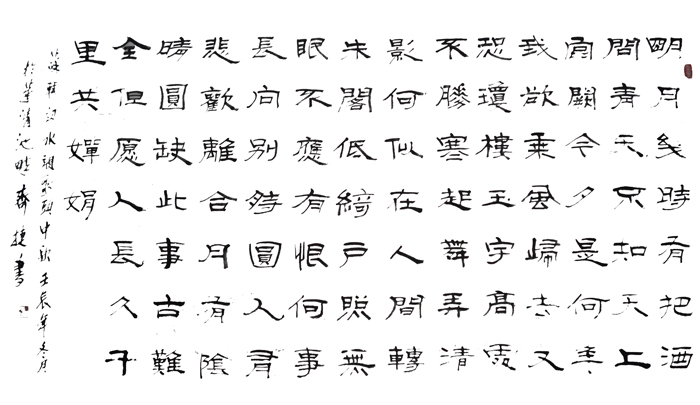 明月幾時有把酒
問青天不知天上
宮闕今夕是何年
我欲乘風歸去又
恐瓊樓玉宇高處
不勝寒起舞弄清
影何似在人間轉
朱閣低綺戶照無
眠不應有恨何事
長向別時圓人有
悲歡離合月有陰
晴圓缺此事古難
全但愿人長久千
里共嬋娟
蘇軾词水調歌頭中秋壬辰年冬月
於華清池畔捷書